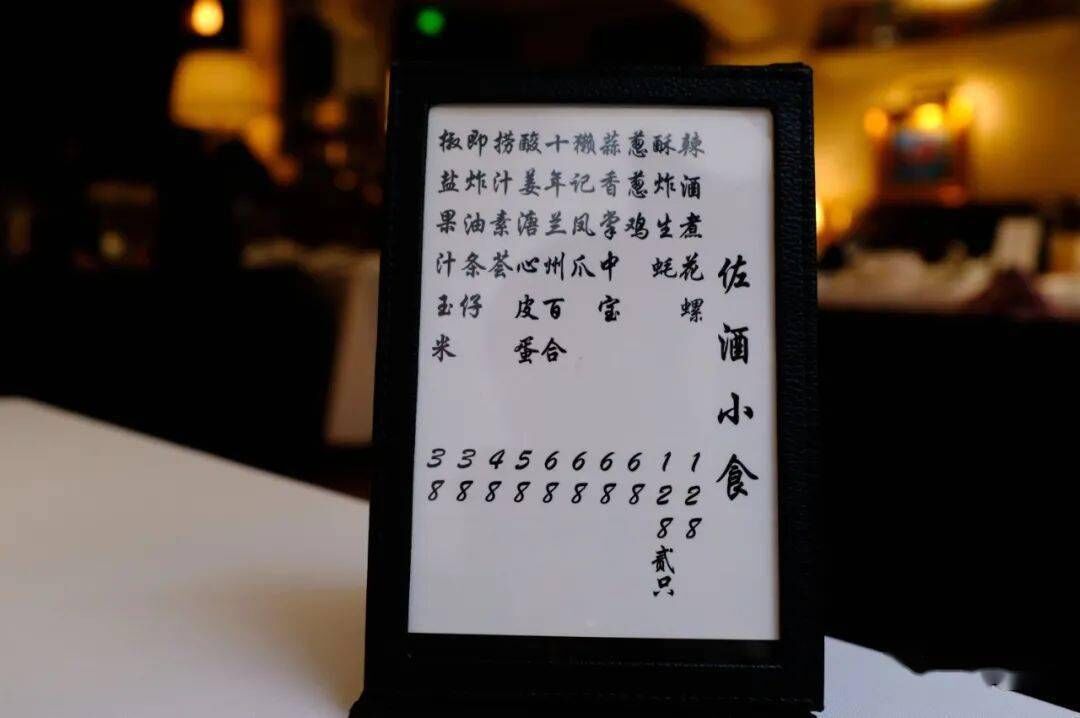 佐酒小食
辣酒煮花螺 128
酥炸生蚝 128贰只
葱葱鸡 68
蒜香掌中宝 68
獭记凤爪 68
十年兰州百合 68
酸姜溏心皮蛋 58
捞汁素荟 48
即炸油条仔 38
椒盐果汁玉米 38